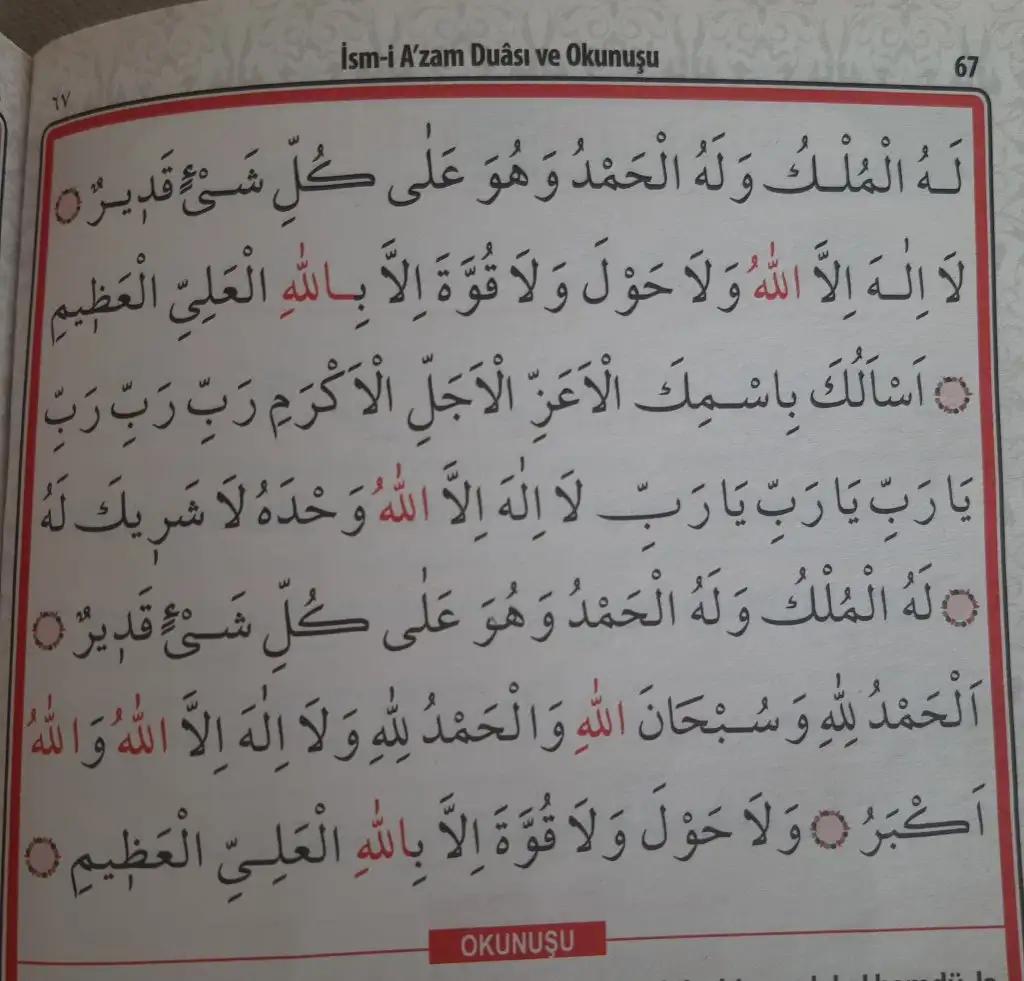 İsm-i A'zam Duâsı ve Okunuşu
67
٦٧
لَهُ الْمُلْكُ وَلَهُ الْحَمْدُ وَهُوَ عَلٰى كُلِّ شَىْءٍ قَدٖيرٌ
لَا اِلٰهَ اِلَّا اللّٰهُ وَلَا حَوْلَ وَلَا قُوَّةَ اِلَّا بِاللّٰهِ الْعَلِىِّ الْعَظٖيمِ
اَسْاَلُكَ بِاسْمِكَ الْاَعَزِّ الْاَجَلِّ الْاَكْرَمِ رَبِّ رَبِّ رَبِّ
يَا رَبِّ يَا رَبِّ يَا رَبِّ لَا اِلٰهَ اِلَّا اللّٰهُ وَحْدَهُ لَا شَرٖيكَ لَهُ
لَهُ الْمُلْكُ وَلَهُ الْحَمْدُ وَهُوَ عَلٰى كُلِّ شَىْءٍ قَدٖيرٌ
اَلْحَمْدُ لِلّٰهِ وَسُبْحَانَ اللّٰهِ وَالْحَمْدُ لِلّٰهِ وَلَا اِلٰهَ اِلَّا اللّٰهُ وَاللّٰهُ
اَكْبَرُ وَلَا حَوْلَ وَلَا قُوَّةَ اِلَّا بِاللّٰهِ الْعَلِىِّ الْعَظٖيمِ
OKUNUŞU